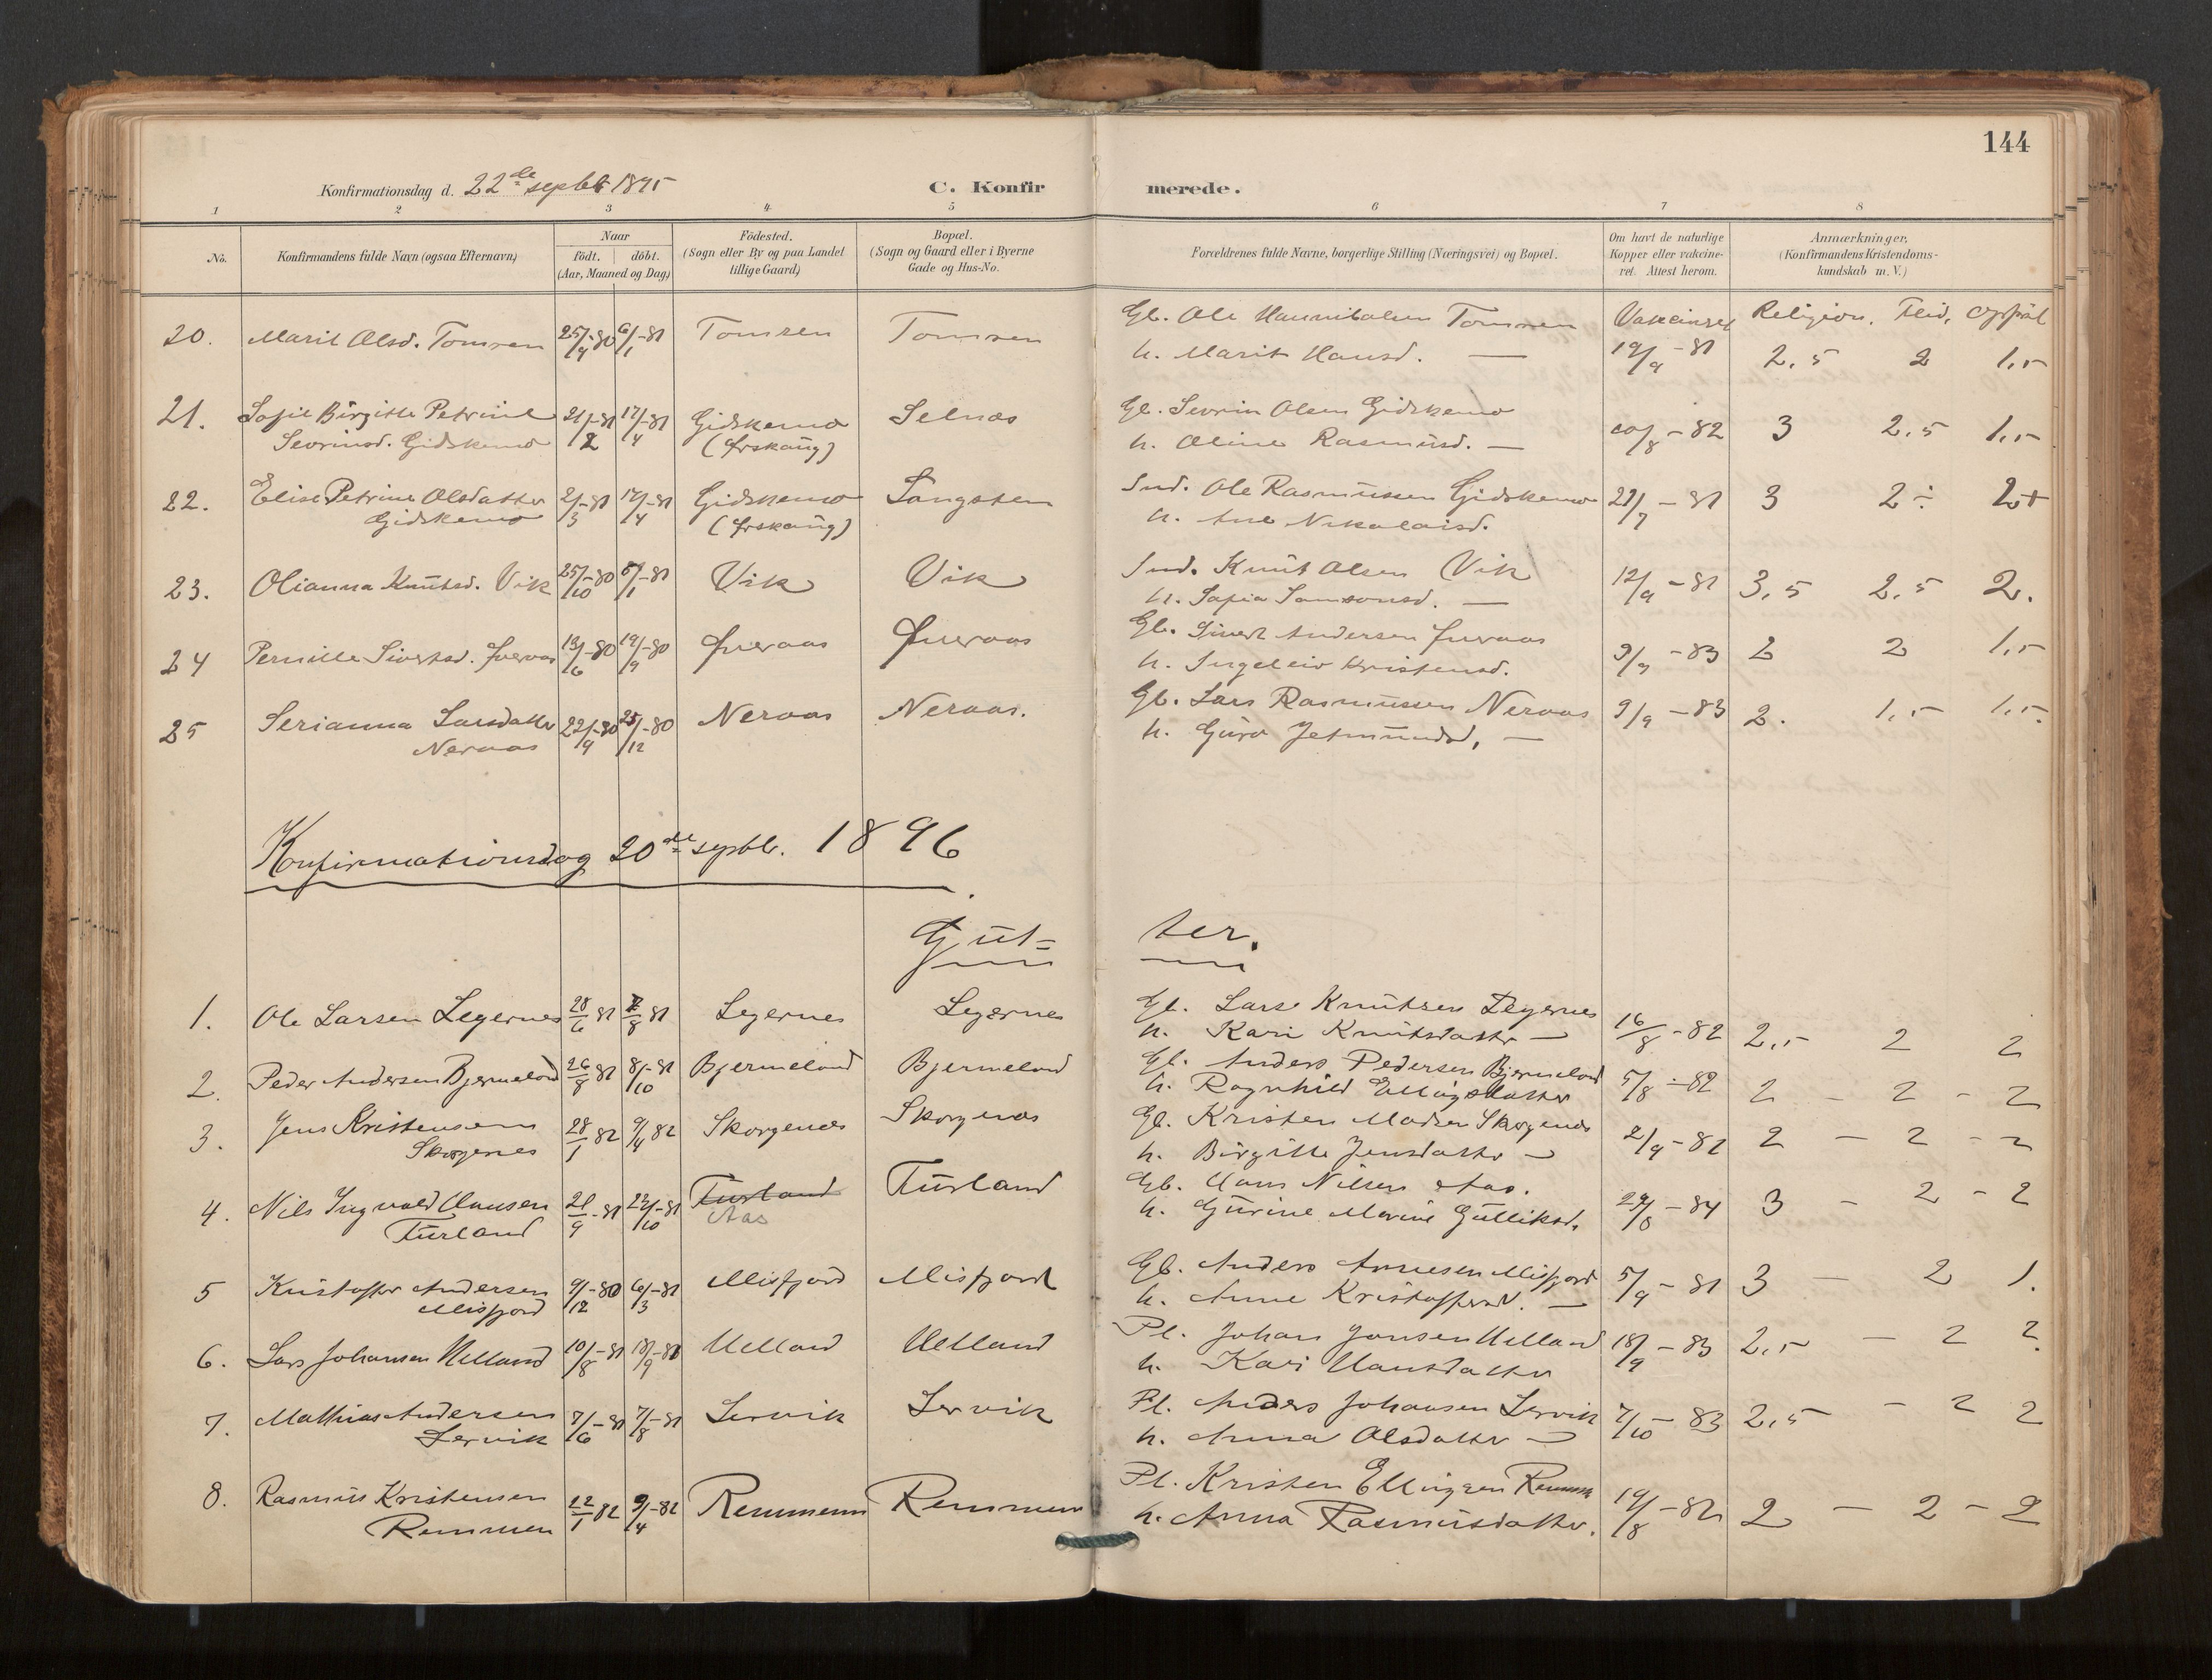 144
Konfirmationsdag d. 22de septbr 1895
C. Konfir merede.
1 2 3 4 5 6 7 8
No.
Konfirmandens fulde Navn (ogsaa Efternavn)
Naar
födt. döbt.
(Aar, Maaned og Dag)
Födested.
(Sogn eller By og paa Landet
tillige Gaard)
Bopæl.
(Sogn og Gaard eller i Byerne
Gade og Hus-No.
Forældrenes fulde Navne, borgerlige Stilling (Næringsvei) og Bopæl.
Om havt de naturlige
Kopper eller vakcine-
ret. Attest herom.
Anmærkninger.
(Konfirmandens Kristendoms-
kundskab m. V.)
Religion. Flid. Opførsl
20. Marit Olsd. Tomren 25/9-80 6/1-81 Tomren Tomren Gb. Ole Hannibalsen Tomren Vakcineret
h. Marit Hansd. — 19/9-81 2,5 2 1,5
21. Sofie Birgitte Petrine 21/2-81 17/4-81 Gidskemo Selnes Gb. Sevrin Olsen Gidskemo
Sevrinsd. Gidskemo (Ørskaug) h. Oline Rasmusd. — 20/8-82 3 2,5 1,5
22. Elise Petrine Olsdatter 2/3-81 17/4-81 Gidskemo Sangsten Ind. Ole Rasmussen Gidskemo 21/7-81 3 2÷ 2+
Gidskemo (Ørskaug) h. Ane Nikolaisd.
23. Olianna Knutsd. Vik 25/10-80 8/1-81 Vik Vik Ind. Knut Olsen Vik
h. Sofia Samsonsd. — 12/9-81 3,5 2,5 2.
24 Pernille Sivertsd. Øveraas 13/6-80 19/9-80 Øveraas Øveraas Gb. Sivert Andersen Øveraas
h. Ingeleiv Kristensd. 9/9-83 2 2 1,5
25 Serianna Larsdatter 22/9-80 25/12-80 Neraas Neraas. Gb. Lars Rasmussen Neraas 9/9-83 2. 1,5 1,5.
Neraas h. Guro Jetmundsd. —
Konfirmationsdag 20de septbr. 1896
Gut= ter.
1. Ole Larsen Legernes 28/6 81 7/8 81 Legernes Legernes Gb. Lars Knutsen Legernes
h. Kari Knutsdatter — 16/8-82 2,5 2 2
2. Peder Andersen Bjermeland 26/8 81 8/10-81 Bjermeland Bjermeland Gb. Anders Pedersen Bjermeland
h. Ragnhild Ellingsdatter 5/8-82 2 — 2 - 2
3. Jens Kristensen 28/1 82 9/4 82 Skorgenes Skorgenes Gb. Kristen Madsen Skorgenes
Skorgenes h. Birgitte Jensdatter — 2/9-82 2 — 2 - 2
4. Nils Ingvald Hansen 21/9-81 23/10-81 Furland Furland Gb. Hans Nilsen Aas.
Furland Aas h. Gurine Marie Gulliksd. 29/8-84 3 — 2 - 2
5 Kristoffer Andersen 9/12-80 6/3-81 Misfjord Misfjord Gb. Anders Arnesen Misfjord
Misfjord h. Anne Kristoffersd. — 5/9-81 3 — 2 1.
6. Lars Johansen Helland 10/8-81 18/9-81 Helland Helland Pl. Johan Jonsen Helland
h. Kari Hansdatter 18/9-83 2,5 — 2 2
7. Mathias Andersen 7/6-81 7/8-81 Lervik Lervik Pl. Anders Johansen Lervik
Lervik h. Anna Olsdatter — 7/10-83 2,5 - 2 2
8. Rasmus Kristensen 12/1 82 9/4-82 Remmem Remmem Pl. Kristen Ellingsen Remmem
Remmem h. Anna Rasmusdatter. 19/8-82 2 — 2 - 2